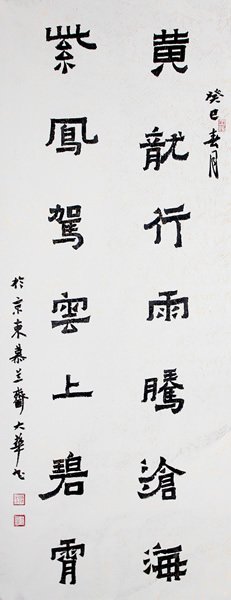 癸巳春月
黄龍行雨騰滄海
紫鳳駕雲上碧霄
於京東慕兰齋大華书